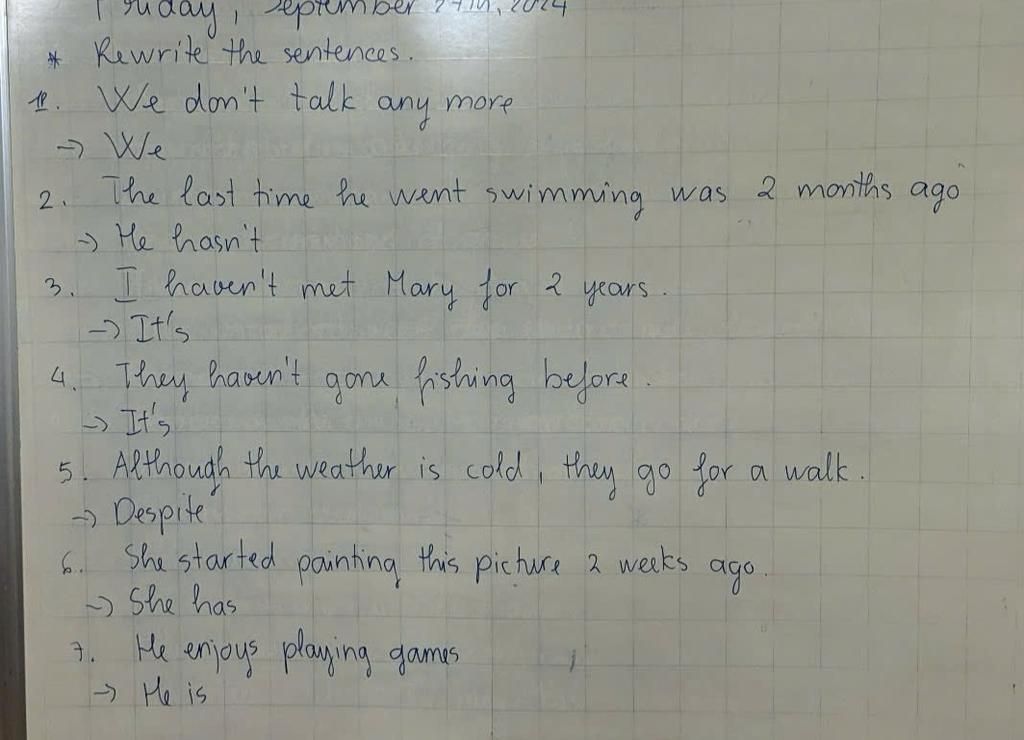 Friday, September 27th, 2024
* Rewrite the sentences.
1. We don't talk any more
→ We
2. The last time he went swimming was 2 months ago
→ He hasn't
3. I haven't met Mary for 2 years.
→ It's
4. They haven't gone fishing before.
→ It's
5. Although the weather is cold, they go for a walk.
→ Despite
6. She started painting this picture 2 weeks ago.
→ She has
7. He enjoys playing games
→ He is